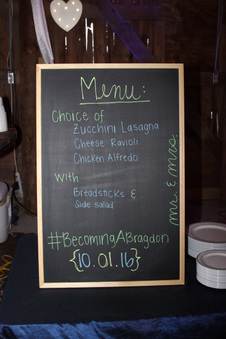 Menu:
Choice of
Zucchini Lasagna
Cheese Ravioli
Chicken Alfredo
With
Breadsticks &
Side salad
mr. & mrs.
#BecomingABragdon
{10.01.16}